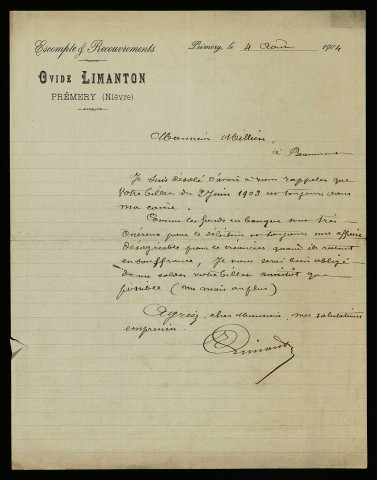 Escompte & Recouvrements
Prémery, le 4 Août 1904
OVIDE LIMANTON
PRÉMERY (Nièvre)
Monsieur Millien,
à Beaumont
Je suis désolé d'avoir à vous rappeler que
votre billet du 2 Juin 1903 est toujours dans
ma caisse.
Comme les fonds en banque sont très
onéreux pour le débiteur et toujours une affaire
désagréable pour le créancier quand ils restent
en souffrance, je vous serai bien obligé
de me solder votre billet aussitôt que
possible (un mois au plus)
Agréez, cher Monsieur, mes salutations
empressées.
Limanton